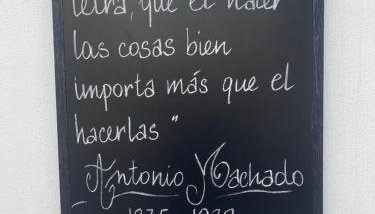 letra, que el hacer
las cosas bien
importa más que el
hacerlas"
Antonio Machado
1875-1939